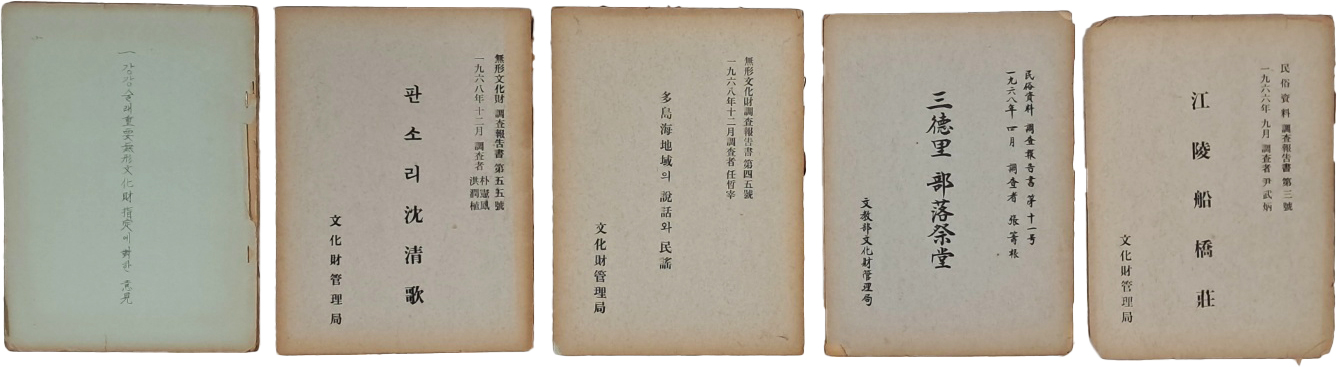 一 강강술래重要無形文化財指定에對한 意見
無形文化財 調査報告書 第五五號
一九六八年十二月 調査者 朴憲鳳 洪潤植
판소리沈清歌
文化財管理局
無形文化財調査報告書 第四五號
一九六八年十二月調査者 任晳宰
多島海地域의 說話와 民謠
文化財管理局
民俗資料 調査報告書 第十一号
一九六八年 四月 調査者 張籌根
三德里 部落祭堂
文教部文化財管理局
民俗資料 調査報告書 第三號
一九六六年 九月 調査者 尹武炳
江陵船橋莊
文化財管理局